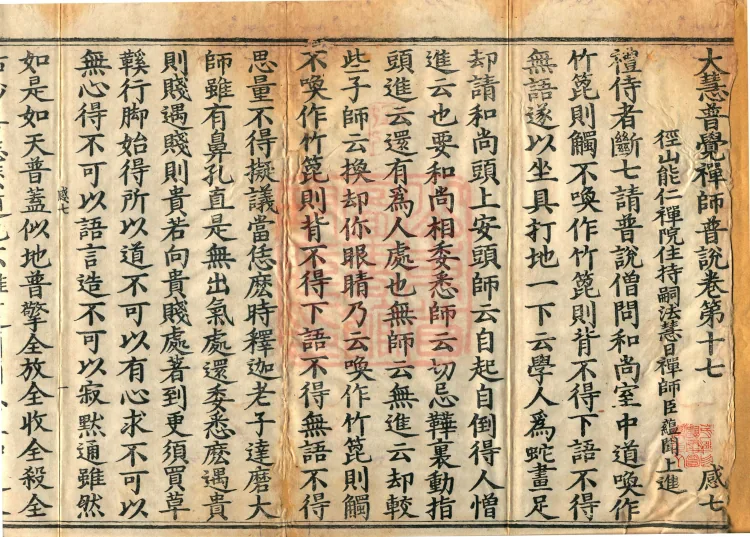 大慧普覺禪師普說卷第十七 感七
徑山能仁禪院住持嗣法慧日禪師臣蘊聞上進
禮侍者斷七請普說僧問和尚室中道喚作
竹篦則觸不喚作竹篦則背不得下語不得
無語遂以坐具打地一下云學人為蛇畫足
却請和尚頭上安頭師云自起自倒得人憎
進云也要和尚相委悉師云切忌鞾裏動指
頭進云還有為人處也無師云無進云却較
些子師云換却你眼睛乃云喚作竹篦則觸
不喚作竹篦則背不得下語不得無語不得
思量不得擬議當恁麼時釋迦老子達磨大
師雖有鼻孔直是無出氣處還委悉麼遇貴
則賤遇賤則貴若向貴賤處著到更須買草
鞋行脚始得所以道不可以有心求不可以
無心得不可以語言造不可以寂默通雖然
感七
一
如是如天普蓋似地普擎全放全收全殺全